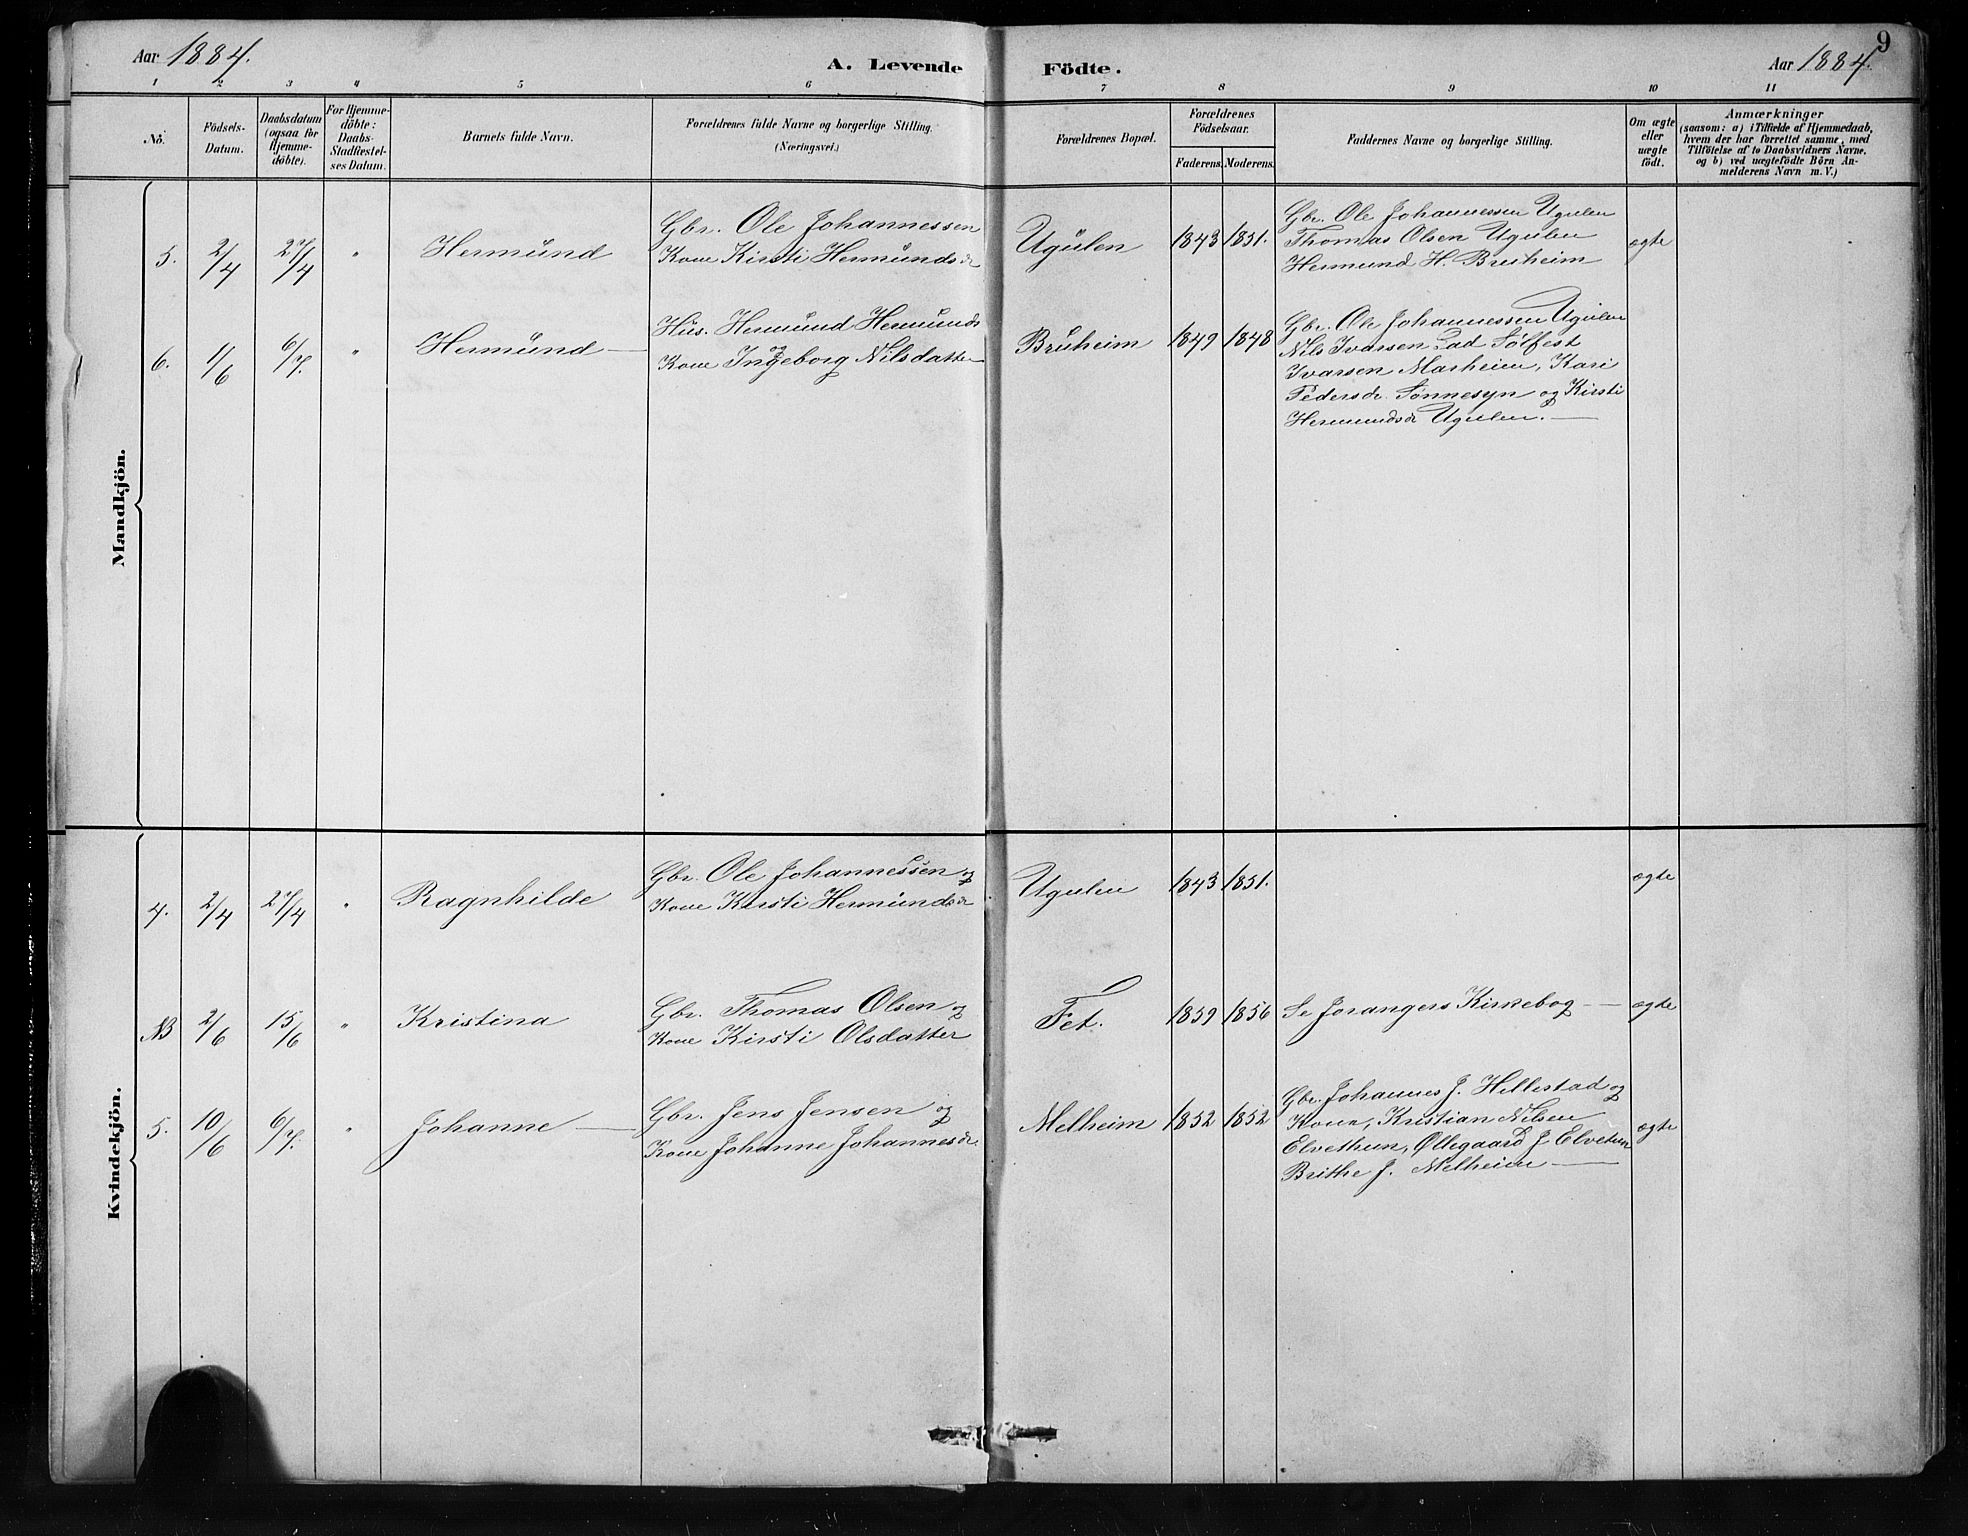 Aar 1884. A. Levende Födte. Aar 1884. 9
1 2 3 4 5 6 7 8 9 10 11
No.
Födsels-
Datum.
Daabsdatum
(ogsaa for
Hjemme-
döbte).
For Hjemme-
döbte:
Daabs-
Stadfæstel-
ses Datum.
Barnets fulde Navn.
Forældrenes fulde Navne og borgerlige Stilling.
(Næringsvei.)
Forældrenes Bopæl.
Forældrenes
Födselsaar.
Faderens. Moderens.
Faddernes Navne og borgerlige Stilling.
Om ægte
eller
uægte
födt.
Anmærkninger
(saasom: a) i Tilfælde af Hjemmedaab,
hvem der har forrettet samme, med
Tilföielse af to Daabsvidners Navne,
og b) ved uægtefödte Börn An-
melderens Navn m. V.)
Mandkjön.
5. 2/4 27/4 " Hermund
Gbr. Ole Johannessen
Kone Kirsti Hermundsdr
Ugulen 1843 1851.
Gbr. Ole Johannessen Ugulen
Thomas Olsen Ugulen
Hermund H. Bruheim
ægte
6. 1/6 6/7. " Hermund —
Hus. Hermund Hermunds
og
Kone Ingeborg Nilsdatter
Bruheim 1849 1848
Gbr. Ole Johannessen Ugulen
Nils Ivarsen Sølfest
Ivarsen Marheim, Kari
Pedersdr. Sønnesyn og Kirsti
Hermundsdr Ugulen. —
Kvindekjön.
4. 2/4 27/4 " Ragnhilde
Gbr. Ole Johannessen og
Kone Kirsti Hermundsdr
Ugulen 1843 1851. ægte
NB 2/6 15/6 " Kristina
Gbr. Thomas Olsen og
Kone Kirsti Olsdatter
Fet. 1859 1856 Se Joranger Kirkebog — ægte
5. 10/6 6/7. " Johanne —
Gbr. Jens Jensen og
Kone Johanne Johannesdr
Melheim 1852 1852
Gbr. Johannes J. Hillestad og
Kone, Kristian Nilsen
Elvethun, Ollegaard J Elvetun
Brithe J. Melheim —
ægte